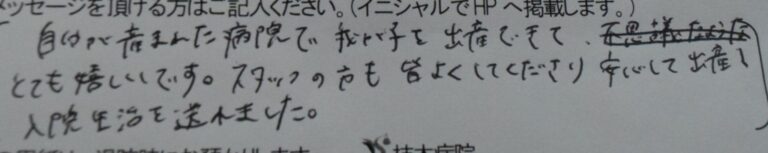 メッセージを頂ける方はご記入ください。(イニシャルでHPへ掲載します。)
自分が産まれた病院で我が子を出産できて、不思議なような
とても嬉しいです。スタッフの方も皆よくしてくださり安心して出産し
入院生活を送れました。